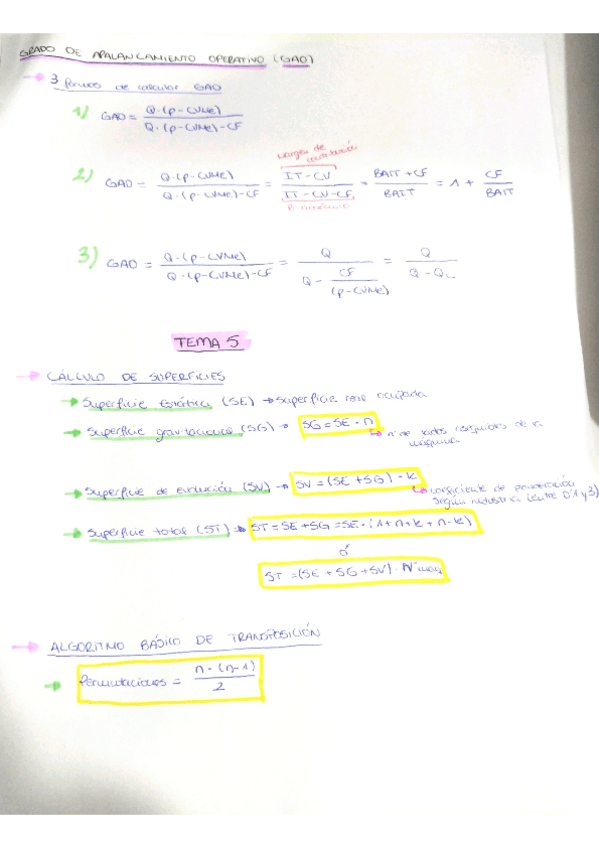 GRADO DE APALANCAMIENTO OPERATIVO (GAO)
3 formas de calcular GAO
1) GAO = Q·(p-CVMe) / Q·(p-CVMe)-CF
Margen de contribución
2) GAO = Q·(p-CVMe) / Q·(p-CVMe)-CF = IT-CV / IT-CV-CF = BAIT+CF / BAIT = 1 + CF / BAIT
3) GAO = Q·(p-CVMe) / Q·(p-CVMe)-CF = Q / Q - CF / (p-CVMe) = Q / Q-Q
TEMA 5
CÁLCULO DE SUPERFICIES
Superficie estática (SE) → Superficie ocupada
Superficie (SG) → SG = SE · n
nº de lados de la
máquina
Superficie de evolución (SV) → SV = (SE + SG) · k
coeficiente de
según industria (entre 0'1 y 3)
Superficie total (ST) → ST = SE + SG = SE · (1+n+k+n·k)
ó
ST = (SE + SG + SV) · Nº maq
ALGORITMO BÁSICO DE TRANSPOSICIÓN
Permutaciones = n·(n-1) / 2